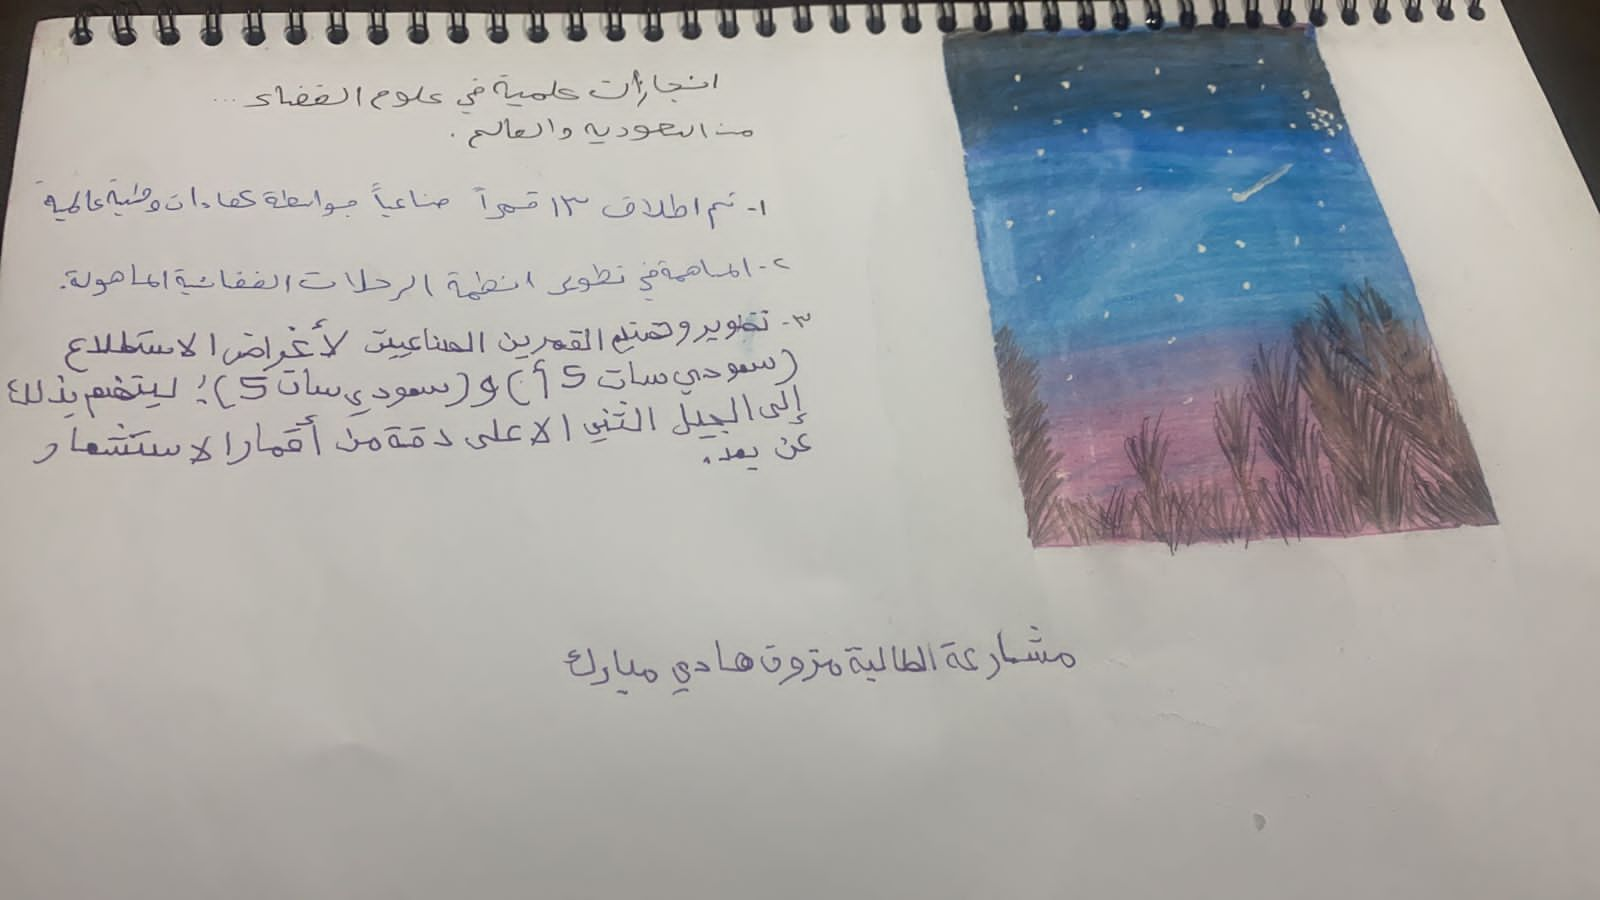 انجازات علمية في علوم الفضاء ...
من السعودية والعالم .
١- تم اطلاق ١٣ قمراً صناعياً بواسطة كفاءات وطنية عالمية
٢- المساهمة في تطوير انظمة الرحلات الفضائية الماهولة.
٣- تطوير وتصنيع القمرين الصناعيين لأغراض الاستطلاع
(سعودي سات 5 أ) و (سعودي سات 5)؛ لينضم بذلك
إلى الجيل الثني الاعلى دقة من أقمار الاستشعار
عن بعد.
مشاركة الطالبة هادي مبارك